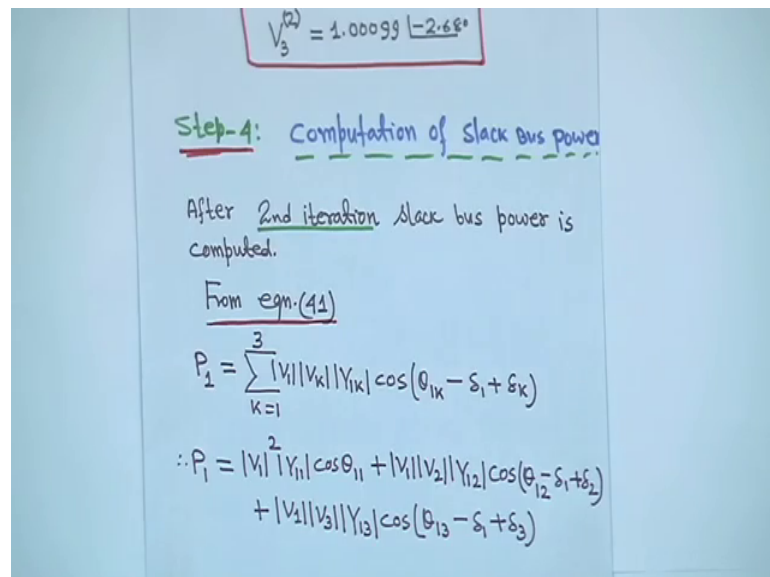 V₃⁽²⁾ = 1.00099 ∟-2.68°
Step-4: Computation of Slack Bus power
After 2nd iteration slack bus power is
computed.
From eqn.(41)
P₁ = ∑_{K=1}^{3} |V₁||V_K||Y_{1K}| cos(θ_{1K} - δ₁ + δ_K)
∴P₁ = |V₁|²|Y₁₁| cosθ₁₁ + |V₁||V₂||Y₁₂| cos(θ₁₂-δ₁+δ₂)
+ |V₁||V₃||Y₁₃| cos(θ₁₃ - δ₁ + δ₃)